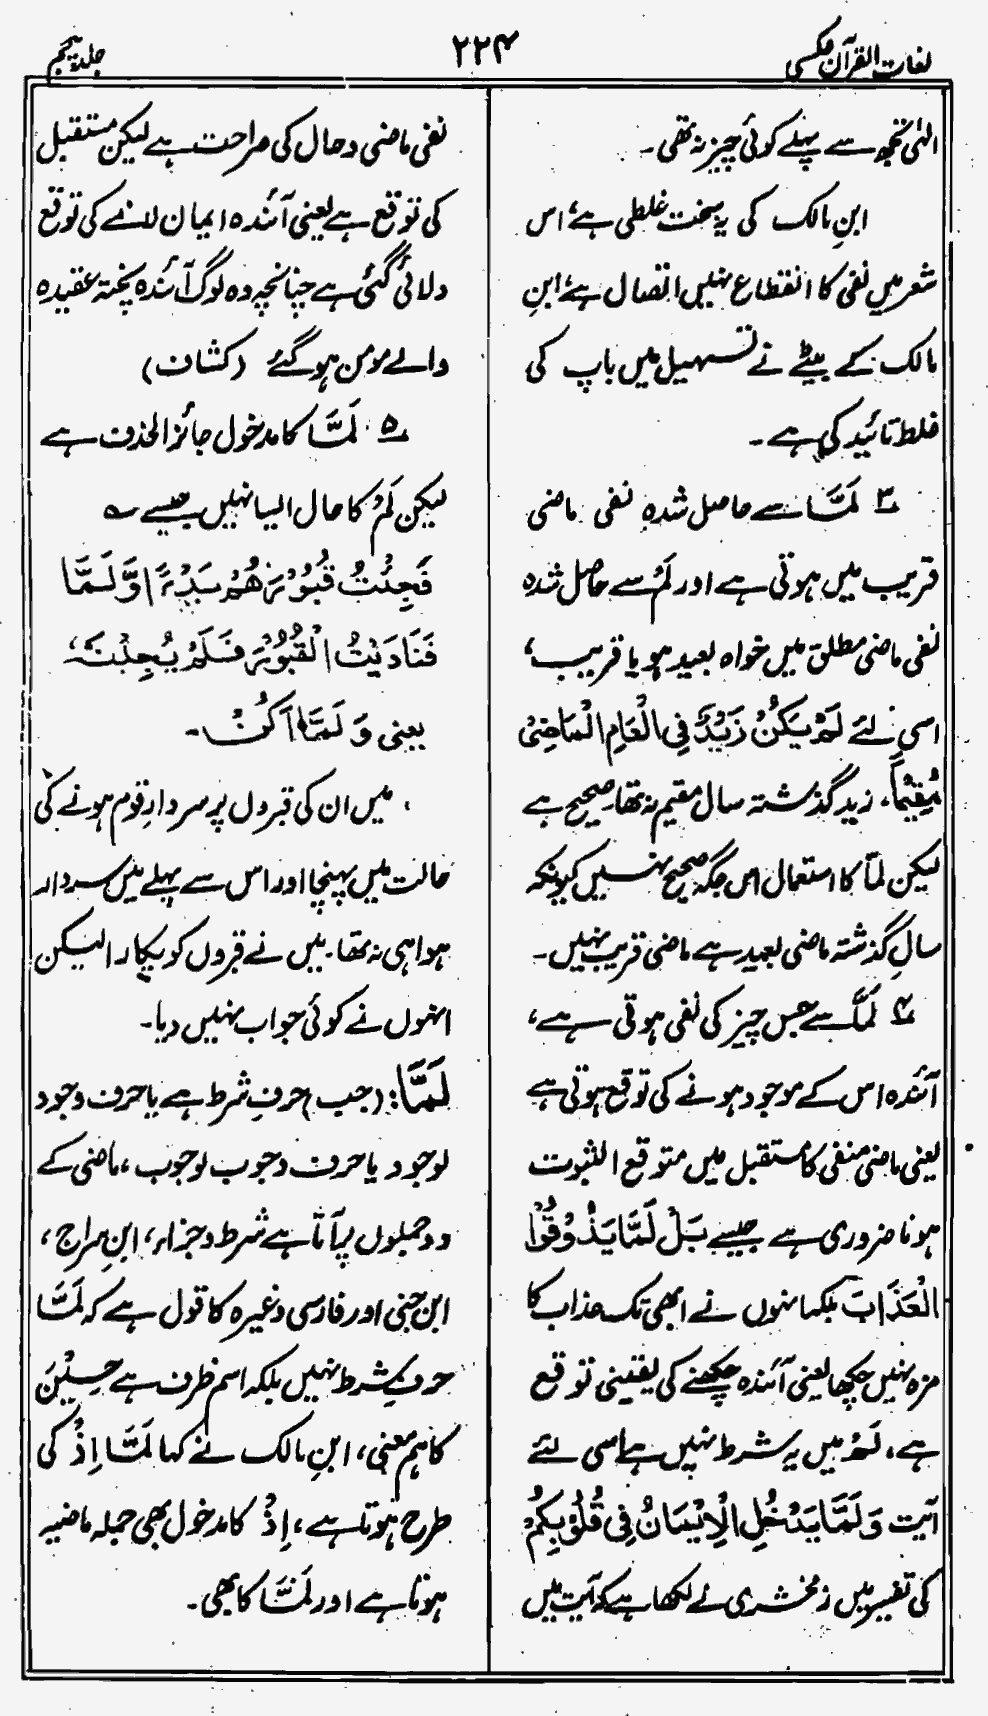 لغات القرآن عکسی
۲۲۴
جلد پنجم
الٰہی تجھ سے پہلے کوئی چیز نہ تھی۔
ابنِ مالک کی یہ سخت غلطی ہے، اس
شعر میں نفی کا انقطاع نہیں اتصال ہے، ابنِ
مالک کے بیٹے نے تسہیل میں باپ کی
غلط تائید کی ہے۔
۳ لَمَّا سے حاصل شدہ نفی ماضی
قریب میں ہوتی ہے اور لَمْ سے حاصل شدہ
نفی ماضی مطلق میں خواہ بعید ہو یا قریب،
اسی لئے لَمْ یَکُنْ زَیْدٌ فِی الْعَامِ الْمَاضِیْ
مُقِیْمًا۔ زید گذشتہ سال مقیم نہ تھا، صحیح ہے
لیکن لمّا کا استعمال اس جگہ صحیح نہیں کیونکہ
سالِ گذشتہ ماضی بعید ہے ماضی قریب نہیں۔
۴ لَمَّا سے جس چیز کی نفی ہوتی ہے،
آئندہ اس کے موجود ہونے کی توقع ہوتی ہے
یعنی ماضی منفی کا مستقبل میں متوقع الثبوت
ہونا ضروری ہے جیسے بَلْ لَمَّا یَذُوْقُوا
الْعَذَابَ بلکہ انہوں نے ابھی تک عذاب کا
مزہ نہیں چکھا یعنی آئندہ چکھنے کی یقینی توقع
ہے، لَمْ میں یہ شرط نہیں ہے اسی لئے
آیت وَلَمَّا یَدْخُلِ الْاِیْمَانُ فِیْ قُلُوْبِکُمْ
کی تفسیر میں زمخشری نے لکھا ہے کہ آیت میں
نفی ماضی و حال کی صراحت ہے لیکن مستقبل
کی توقع ہے یعنی آئندہ ایمان لانے کی توقع
دلائی گئی ہے چنانچہ وہ لوگ آئندہ پختہ عقیدہ
والے مومن ہو گئے (کشاف)
۵ لَمَّا کا مدخول جائز الحذف ہے
لیکن لَمْ کا حال ایسا نہیں جیسے ؎
فَجِئْتُ قُبُوْرَهُمْ بَدْءًا وَّلَمَّا
فَنَادَیْتُ الْقُبُوْرَ فَلَمْ یُجِبْنَهْ،
یعنی وَلَمَّا اَکُنْ۔
میں ان کی قبروں پر سردارِ قوم ہونے کی
حالت میں پہنچا اور اس سے پہلے میں سردار
ہوا ہی نہ تھا۔ میں نے قبروں کو پکارا لیکن
انہوں نے کوئی جواب نہیں دیا۔
لَمَّا: (جب) حرفِ شرط ہے یا حرف وجود
لوجود یا حرف وجوب لوجوب، ماضی کے
دو جملوں پر آتا ہے شرط و جزاء، ابنِ سراج،
ابن جنی اور فارسی وغیرہ کا قول ہے کہ لَمَّا
حرفِ شرط نہیں بلکہ اسم ظرف ہے حِیْنَ
کا ہم معنی، ابنِ مالک نے کہا لَمَّا اِذْ کی
طرح ہوتا ہے، اِذْ کا مدخول بھی جملہ ماضیہ
ہوتا ہے اور لَمَّا کا بھی۔